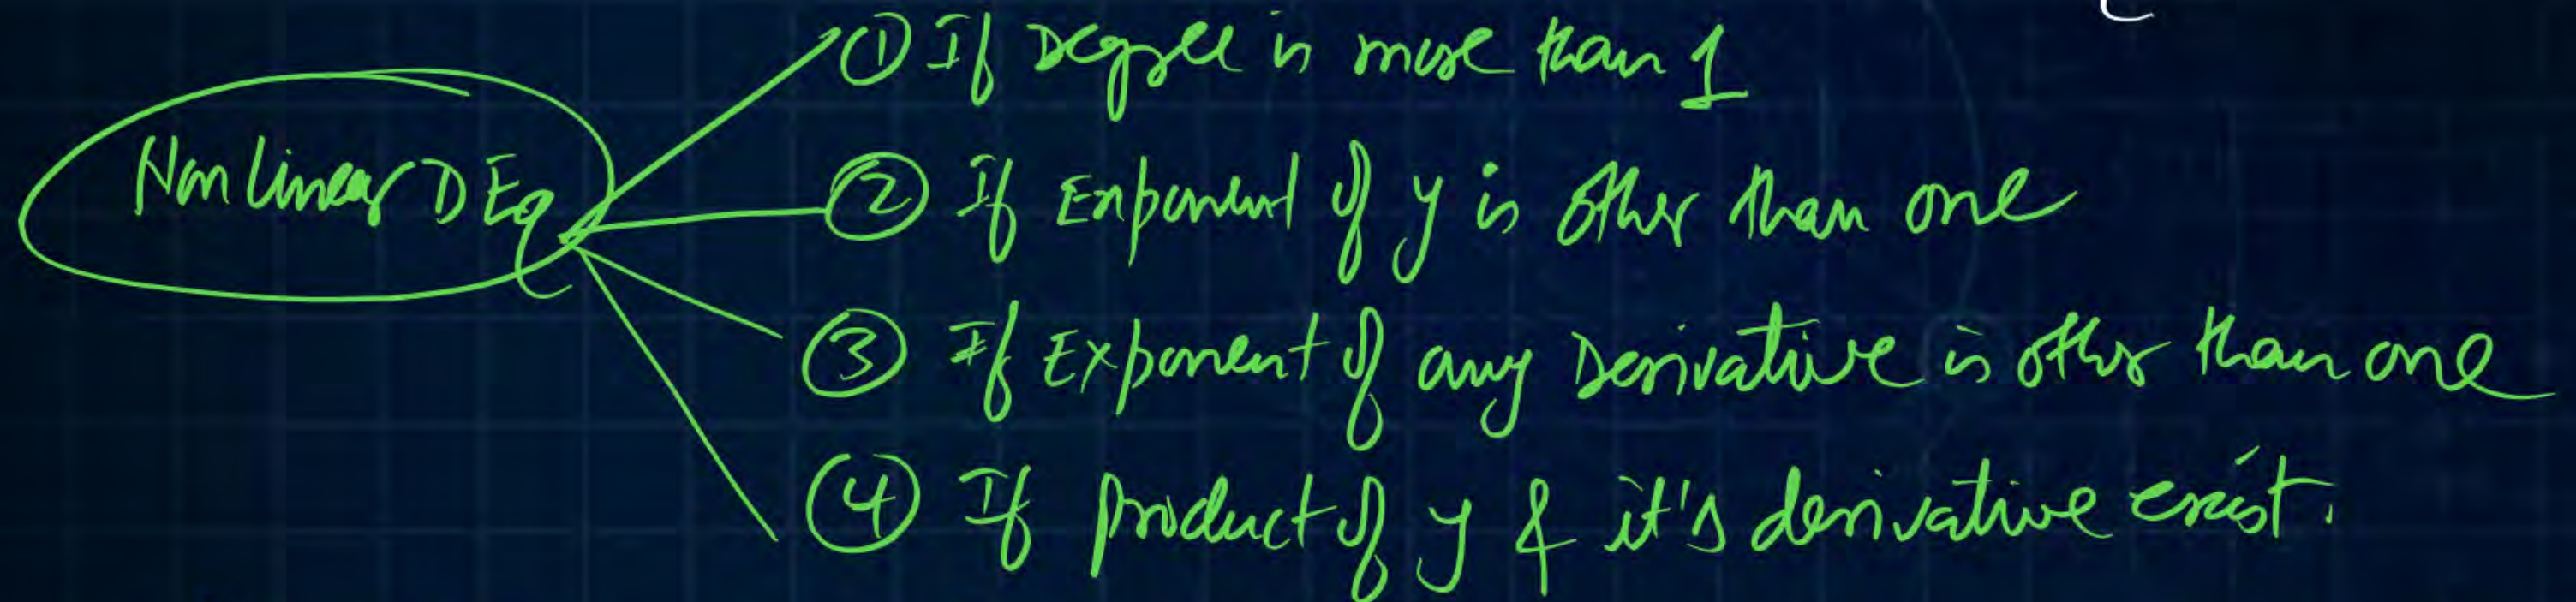 ① If Degree is more than 1
Non linear D Eq
② If Exponent of y is other than one
③ If Exponent of any Derivative is other than one
④ If product of y & it's derivative exist.